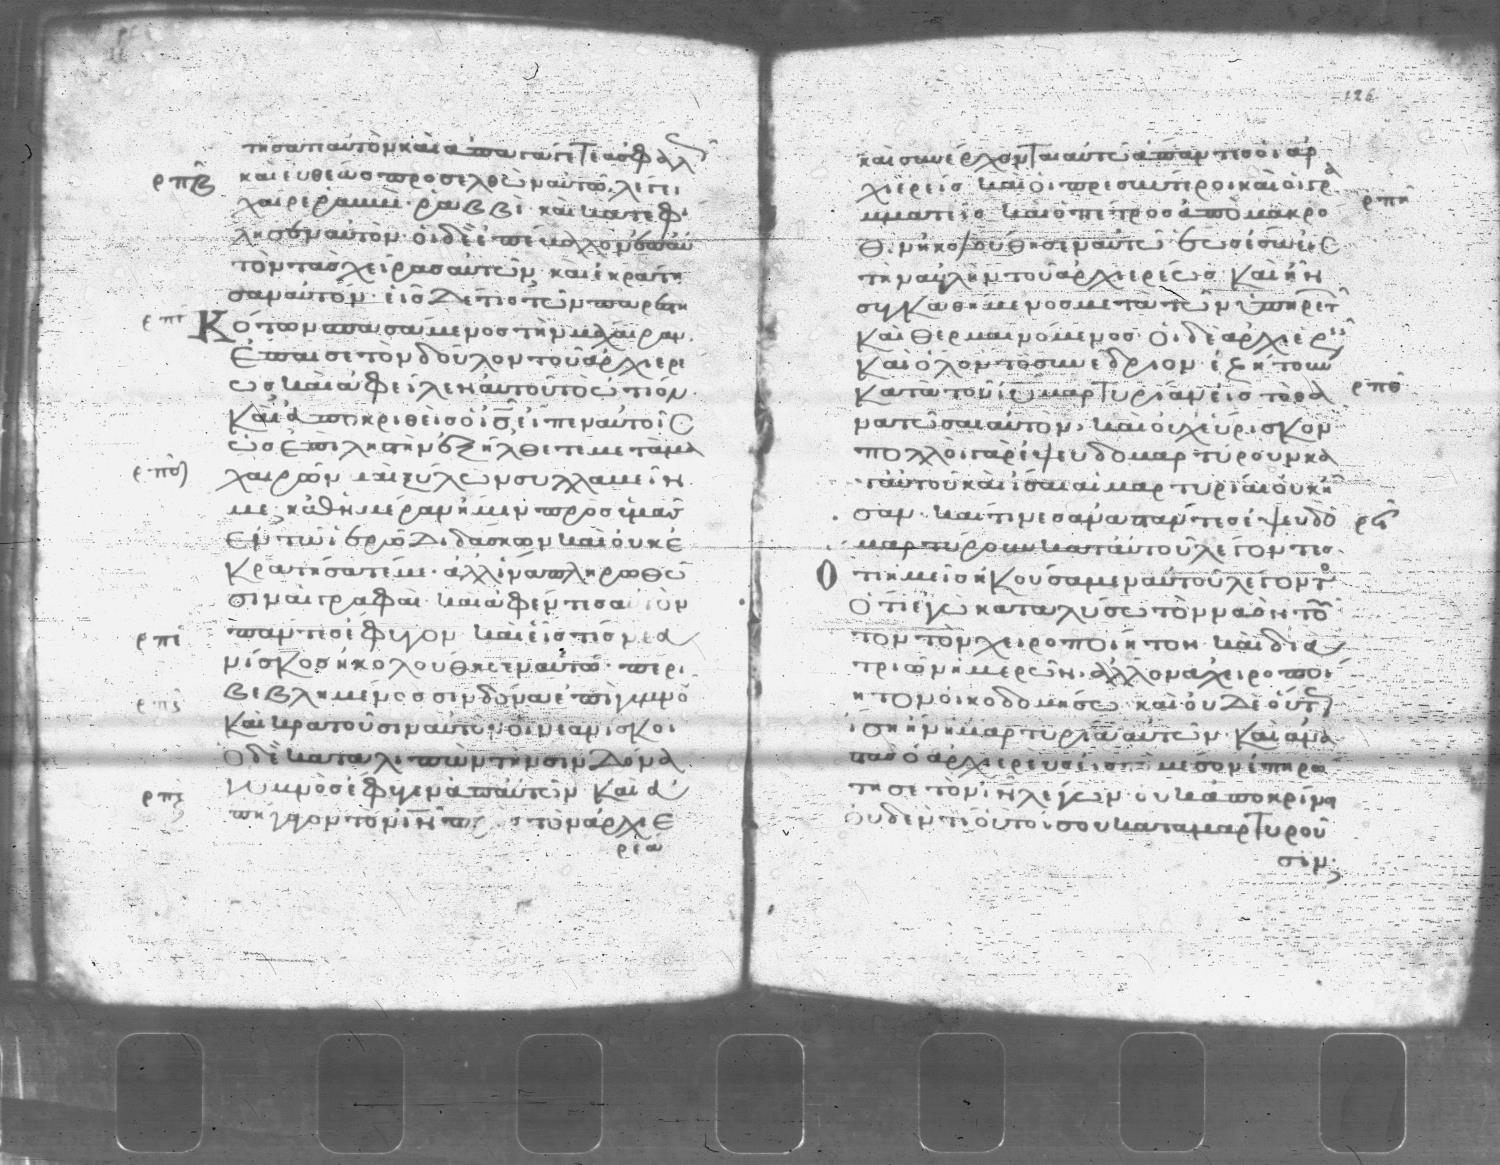 τησαται αυτὸν καὶ ἀπαγάγετε ἀσφαλῶς
ρπβ καὶ εὐθέως προσελθὼν αὐτῶ λέγει
χαῖρε ραββὶ ραββὶ καὶ κατεφί
λησεν αὐτὸν οἱ δὲ ἐπέβαλλον ἐπ αὐ
τὸν τὰς χεῖρας αὐτῶν καὶ ἐκράτη
σαν αὐτόν εἷς δέ τις τῶν παρεστη
ρπγ Κότων σπασάμενος τὴν μάχαιραν
ἔπαισε τὸν δοῦλον τοῦ ἀρχιερέ
ως καὶ ἀφεῖλεν αὐτοῦ τὸ ὠτίον
Καὶ ἀποκριθεὶς ὁ ις εἶπεν αὐτοῖς
ὡς ἐπὶ ληστὴν ἐξήλθετε μετὰ μα
ρπδ χαιρῶν καὶ ξύλων συλλαβεῖν
με καθημέραν ἤμην πρὸς ὑμᾶς
ἐν τῶ ἱερῶ διδάσκων καὶ οὐκ ἐ
κρατήσατέ με ἀλλ ἵνα πληρωθῶ
σιν αἱ γραφαί καὶ ἀφέντες αὐτὸν
ρπε πάντες ἔφυγον καὶ εἷς τις νεα
νίσκος ἠκολούθησεν αὐτῶ περι
βεβλημένος σινδόνα ἐπὶ γυμνοῦ
ρπς Καὶ κρατοῦσιν αὐτὸν οἱ νεανίσκοι
Ὁ δὲ καταλιπὼν τὴν σινδόνα
γυμνὸς ἔφυγεν ἀπ αὐτῶν Καὶ ἀ
ρπζ πήγαγον τὸν ιν πρὸς τὸν ἀρχιε
ρέα
126
καὶ συνέρχονται αὐτῶ ἅπαντες οἱ ἀρ
χιερεῖς καὶ οἱ πρεσβύτεροι καὶ οἱ γρα
μματεῖς καὶ ὁ πέτρος ἀπὸ μακρό ρπη
θεν ἠκολούθησεν αὐτῶ ἕως ἔσω εἰς
τὴν αὐλὴν τοῦ ἀρχιερέως Καὶ ἦν
συγκαθήμενος μετὰ τῶν ὑπηρετῶν
Καὶ θερμαινόμενος Οἱ δὲ ἀρχιερεῖς
Καὶ ὅλον τὸ συνέδριον ἐζήτουν
Κατὰ τοῦ ιυ μαρτυρίαν εἰς τὸ θα ρπθ
νατῶσαι αὐτόν καὶ οὐχ εὕρισκον
πολλοὶ γὰρ ἐψευδομαρτύρουν κα
τ αὐτοῦ καὶ ἴσαι αἱ μαρτυρίαι οὐκ ἦ
σαν καὶ τινες ἀναστάντες ἐψευδο ρϙ
μαρτύρουν κατ αὐτοῦ λέγοντες
Οτι ἡμεῖς ἠκούσαμεν αὐτοῦ λέγοντος
Ὅτι ἐγὼ καταλύσω τὸν ναὸν τοῦ
τον τὸν χειροποίητον καὶ διὰ
τριῶν ἡμερῶν ἄλλον ἀχειροποί
ητον οἰκοδομήσω καὶ οὐδὲ οὕτως
ἴση ἦν ἡ μαρτυρία αὐτῶν Καὶ ἀνα
στὰς ὁ ἀρχιερεὺς εἰς μέσον ἐπηρώ
τησε τὸν ιν λέγων οὐκ ἀποκρίνη
Οὐδέν τί οὗτοί σου καταμαρτυροῦ
σιν